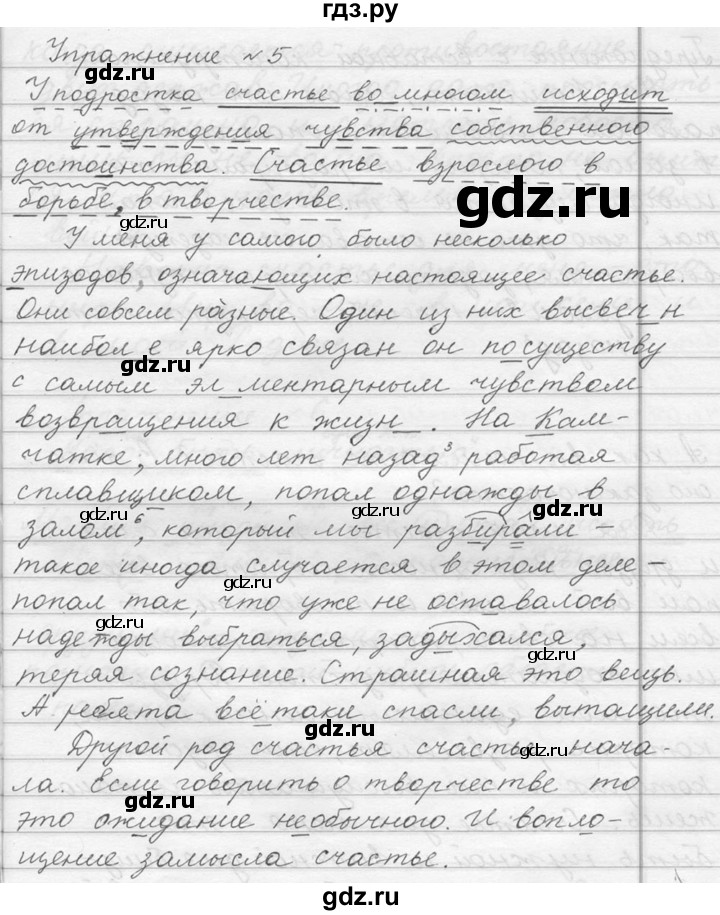 гдз.ру
Упражнение №5
gdz.ru
У подростка счастье во многом исходит
от утверждения чувства собственного
достоинства. Счастье взрослого в
борьбе, в творчестве.
gdz.ru
gdz.ru
У меня у самого было несколько
эпизодов, означающих настоящее счастье.
gdz.ru
Они совсем разные. Один из них высвеч н
наибол е ярко связан он по существу
gdz.ru
с самым эл ментарным чувством
возвращения к жизн . На Кам-
чатке, много лет назад³ работая
gdz.ru
сплавщиком, попал однажды в
gdz.ru
залом⁶, который мы разбирали -
такое иногда случается в этом деле -
gdz.ru
попал так, что уже не оставалось
gdz.ru
надежды выбраться, задыхался,
gdz.ru
теряя сознание. Страшная это вещь.
А ребята всё таки спасли, вытащили.
gdz.ru
Другой род счастья счастье нача-
ла. Если говорить о творчестве то
gdz.ru
это ожидание необычного. И вопло-
gdz.ru
щение замысла счастье.
gdz.ru